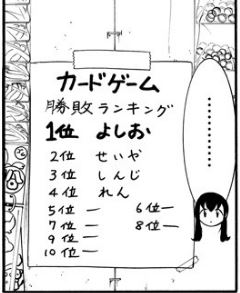 カードゲーム
勝敗ランキング
1位 よしお
2位 せいや
3位 しんじ
4位 れん
5位 ー 6位 ー
7位 ー 8位 ー
9位 ー
10位 ー
…………